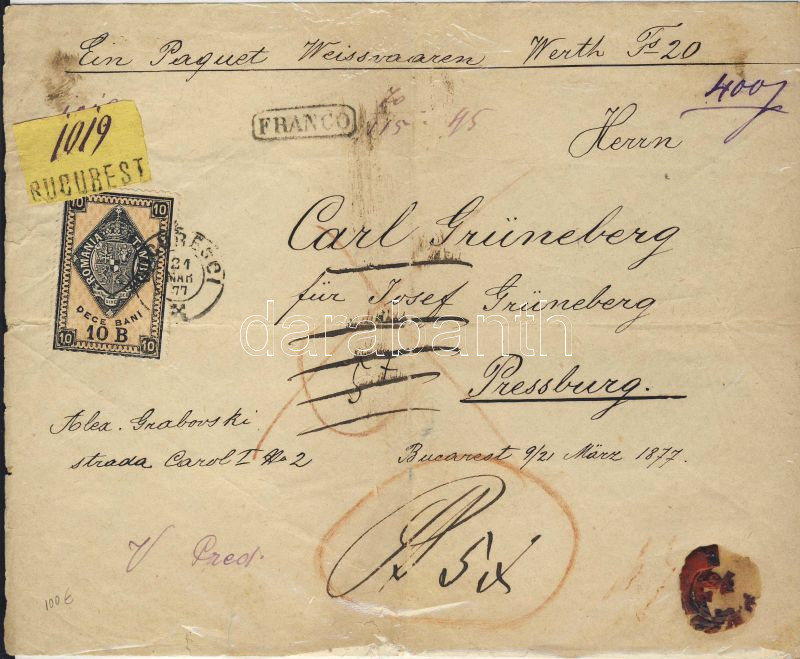 Ein Paquet Weissvaaren Werth Fs 20
400
1019
BUCUREST
FRANCO
70
115 45
Herrn
Carl Grüneberg
für Josef Grüneberg
Pressburg.
10 10
ROMANIA
DECE BANI
10 B
10 10
21
MAR
77
57
darabanth
Alex. Grabovski
strada Carol I No 2
Bucarest 9/21 März 1877.
V Pred.
100 €